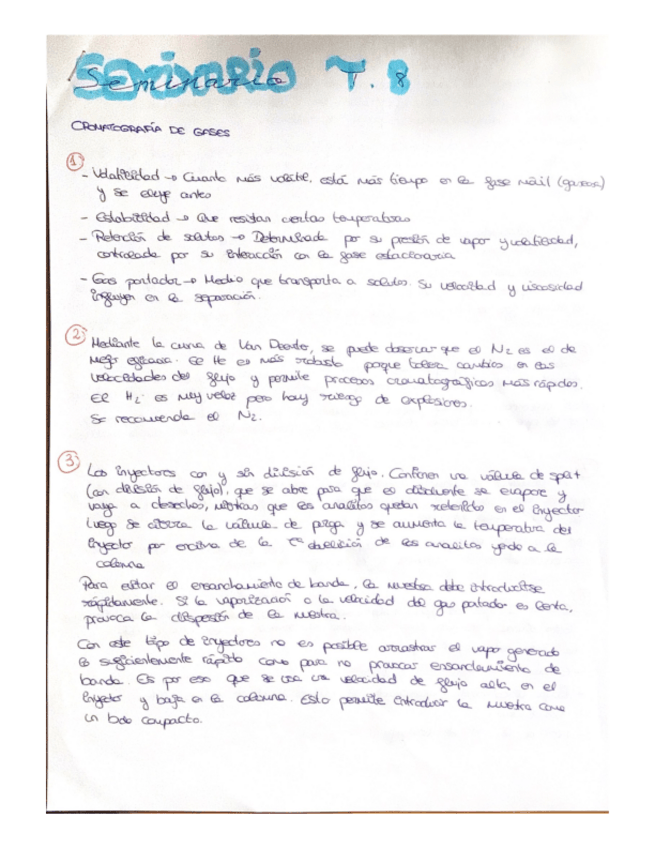 Seminario T. 8
CROMATOGRAFÍA DE GASES
1
- Volatilidad → Cuanto más volátil, está más tiempo en la fase móvil (gaseosa)
y se eluye antes
- Estabilidad → Que resistan ciertas temperaturas
- Retención de solutos → Determinada por su presión de vapor y volatilidad,
controlada por su interacción con la fase estacionaria
- Gas portador → Medio que transporta a solutos. Su velocidad y viscosidad
influyen en la separación.
2
Mediante la curva de Van Deemter, se puede observar que el N2 es el de
mejor eficacia. El He es más robusto porque tolera cambios en las
velocidades del flujo y permite procesos cromatográficos más rápidos.
El H2 es muy veloz pero hay riesgo de explosiones.
Se recomienda el N2.
3
Los inyectores con y sin división de flujo. Contienen una válvula de split
(con división de flujo), que se abre para que el disolvente se evapore y
vaya a desechos, mientras que los analitos quedan retenidos en el inyector
luego se cierra la válvula de purga y se aumenta la temperatura del
inyector por encima de la Tª de ebullición de los analitos yendo a la
columna
Para evitar el ensanchamiento de banda, la muestra debe introducirse
rápidamente. Si la vaporización o la velocidad del gas portador es lenta,
provoca la dispersión de la muestra.
Con este tipo de inyectores no es posible arrastrar el vapor generado
lo suficientemente rápido como para no provocar ensanchamiento de
banda. Es por eso que se usa una velocidad de flujo alta en el
inyector y baja en la columna. Esto permite introducir la muestra como
un todo compacto.